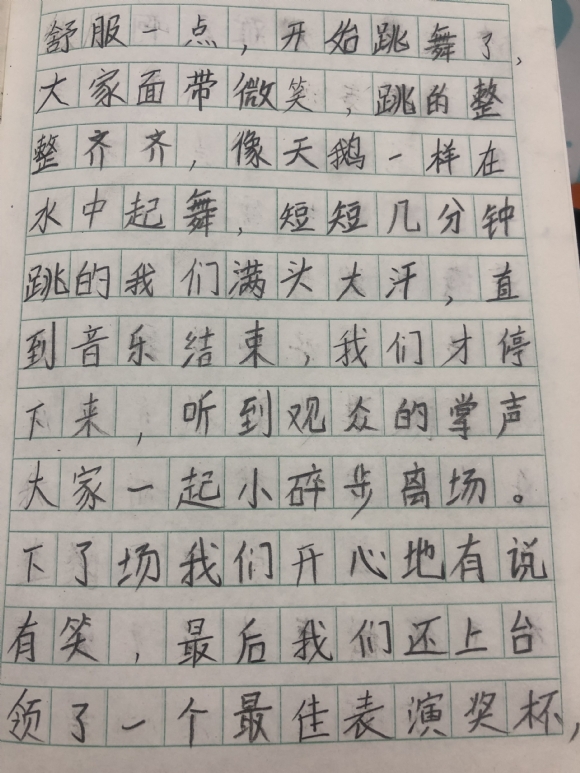 舒服一点，开始跳舞了，
大家面带微笑，跳的整
整齐齐，像天鹅一样在
水中起舞，短短几分钟
跳的我们满头大汗，直
到音乐结束，我们才停
下来，听到观众的掌声
大家一起小碎步离场。
下了场我们开心地有说
有笑，最后我们还上台
领了一个最佳表演奖杯，